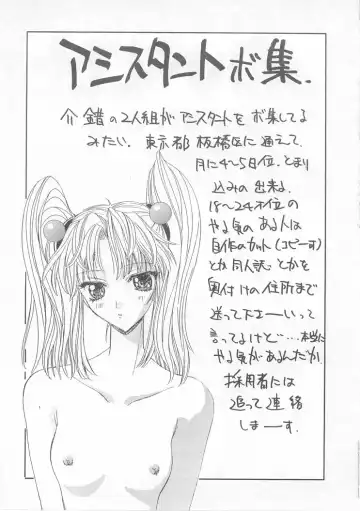 アシスタントボ集.
介錯の2人組がアシスタントをボ集してる
みたい. 東京都板橋区に通えて.
月に4~5日位. とまり
込みの出来る.
18~24才位の
やる気のある人は
自作のカット(コピー可)
とか同人誌とかを
奥付けの住所まで
送って下さーいって
言ってるけど…本当に
やる気があるんだか.
採用者には
追って連絡
しまーす.